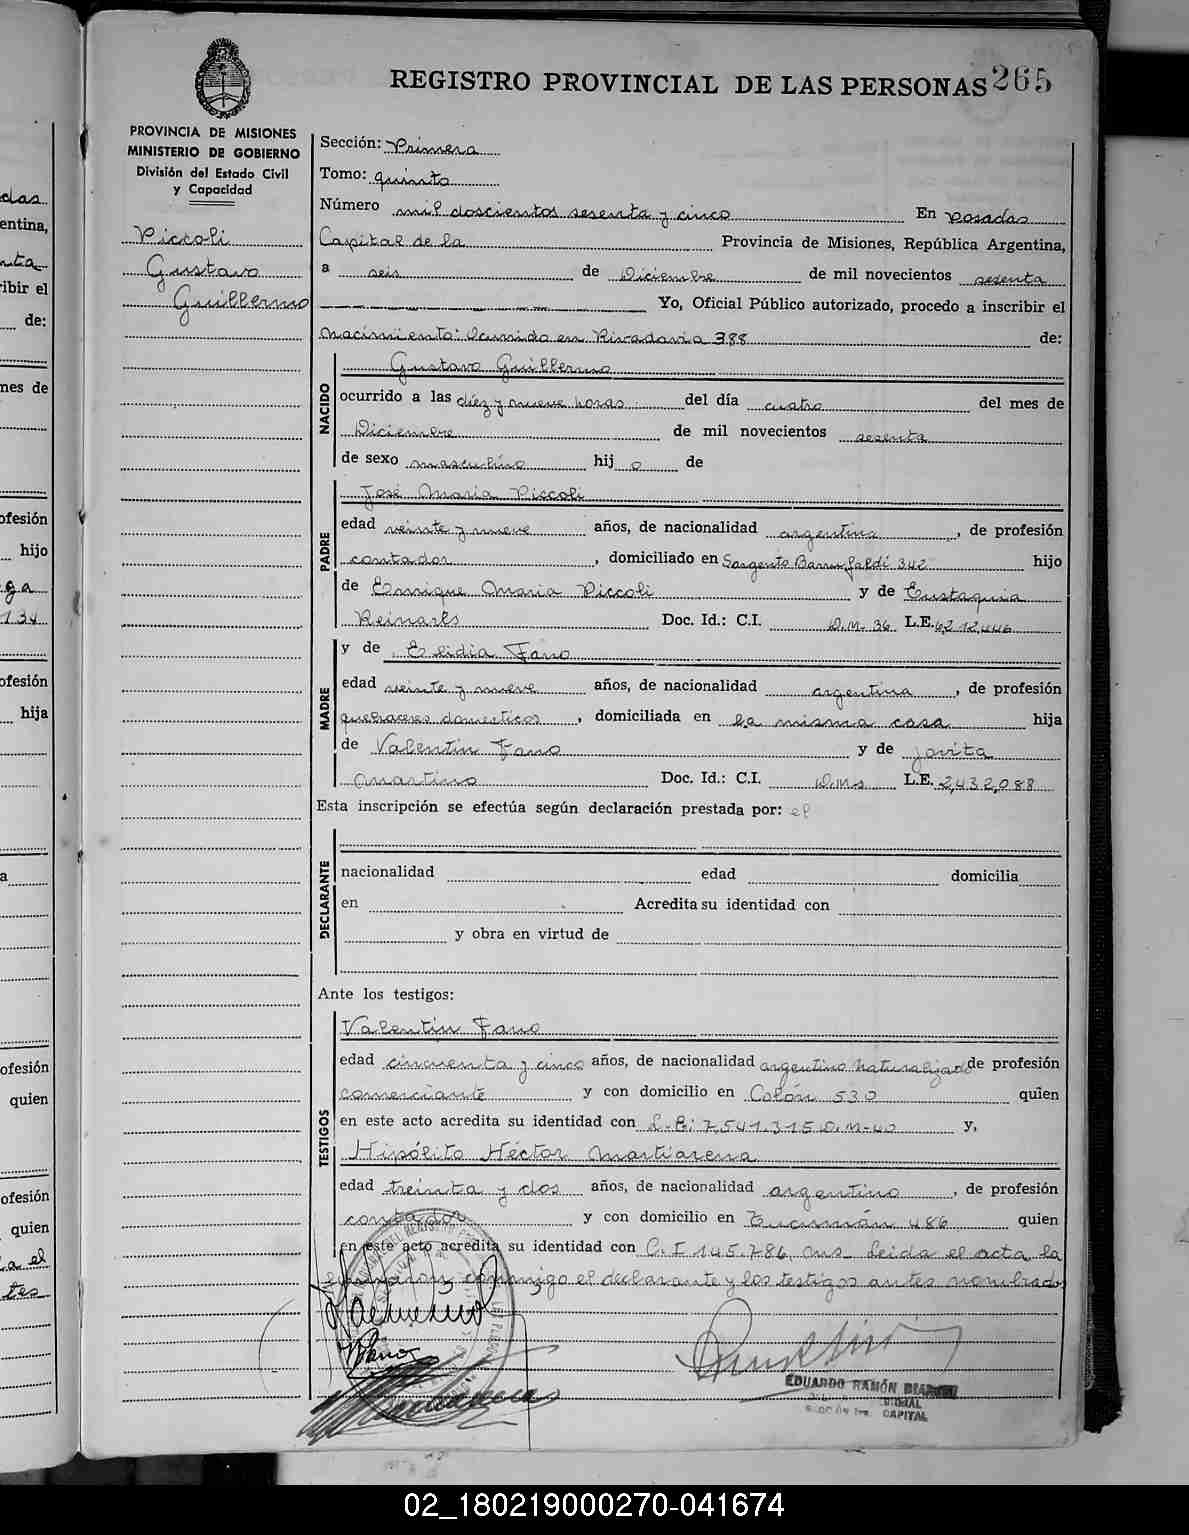 REGISTRO PROVINCIAL DE LAS PERSONAS 265
PROVINCIA DE MISIONES
MINISTERIO DE GOBIERNO
División del Estado Civil
y Capacidad
Piccoli
Gustavo
Guillermo
Sección: Primera
Tomo: quinto
Número mil doscientos sesenta y cinco En Posadas
Capital de la Provincia de Misiones, República Argentina,
a seis de Diciembre de mil novecientos sesenta
Yo, Oficial Público autorizado, procedo a inscribir el
nacimiento: Ocurrido en Rivadavia 388 de:
NACIDO
Gustavo Guillermo
ocurrido a las diez y nueve horas del día cuatro del mes de
Diciembre de mil novecientos sesenta
de sexo masculino hij o de
PADRE
José Maria Piccoli
edad veinte y nueve años, de nacionalidad argentino, de profesión
contador, domiciliado en Sargento Barrufaldi 342 hijo
de Enrique Maria Piccoli y de Eustaquia
Reinarls Doc. Id.: C.I. D.M. 36 L.E. 6,212,446
MADRE
y de Elidia Fano
edad veinte y nueve años, de nacionalidad argentina, de profesión
quehaceres domesticos, domiciliada en la misma casa hija
de Valentin Fano y de Jovita
Martino Doc. Id.: C.I. D.Ms L.E. 2,432,088
Esta inscripción se efectúa según declaración prestada por: el
DECLARANTE
nacionalidad edad domicilia
en Acredita su identidad con
y obra en virtud de
Ante los testigos:
TESTIGOS
Valentin Fano
edad cincuenta y cinco años, de nacionalidad argentino naturalizado de profesión
comerciante y con domicilio en Colón 530 quien
en este acto acredita su identidad con L.E: 7,541.315 D.M-40 y,
Hipólito Héctor Martiarena
edad treinta y dos años, de nacionalidad argentino, de profesión
contador y con domicilio en Tucumán 486 quien
en este acto acredita su identidad con C.I 145.786 Ms Leida el acta la
firmaron conmigo el declarante y los testigos antes nombrados
Fano
EDUARDO RAMÓN
CAPITAL
das
entina,
nta
ribir el
de:
nes de
ofesión
hijo
ga
134
ofesión
hija
a
ofesión
quien
ofesión
quien
a el
tes
02_180219000270-041674